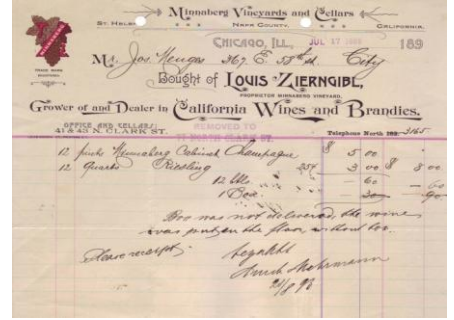 Minnaberg Vineyards and Cellars
St. Helena, Napa County, California.
TRADE MARK
Chicago, Ill., JUL 27 189
Mr. Jos. Menges 367 E. 58th st. City
Bought of LOUIS ZIERNGIBL,
PROPRIETOR MINNABERG VINEYARD.
Grower of and Dealer in California Wines and Brandies.
OFFICE AND CELLARS:
41 & 43 N. CLARK ST.
REMOVED TO
77 NORTH CLARK ST.
Telephone North 3165
12 pints Minnaberg Cabinet Champagne $ 5 00
12 Quarts Riesling 25¢ 3 00 $ 8 00
12 60 60
1 Box 30 90
Box was not delivered, the wine
was put on the floor, without box.
Please receipt